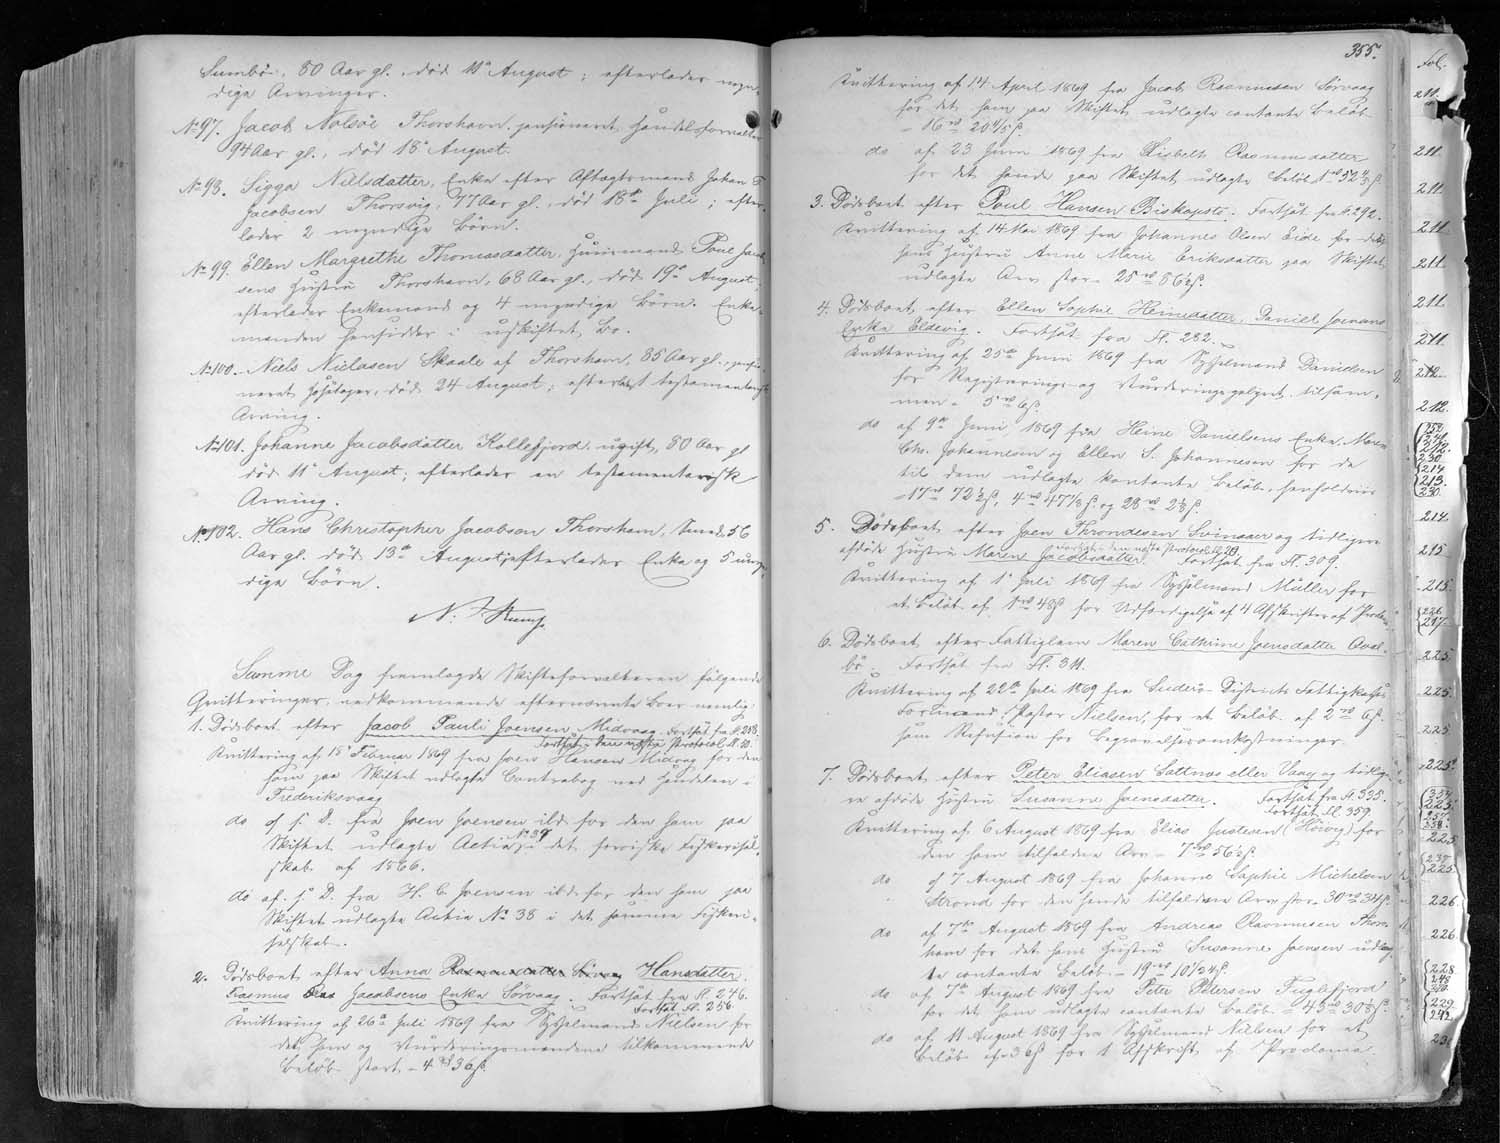 Sumbö, 80 Aar gl., död 11te August; efterlader myn-
dige Arvinger.
No 97. Jacob Nolsöe Thorshavn, pensioneret Handelsforvalter
94 Aar gl., död 18de August.
No 98. Sigga Nielsdatter, Enke efter Aftægtsmand Johan
Jacobsen Thorsvig, 77 Aar gl., död 18de Juli; efter-
lader 2 myndige Börn.
No 99. Ellen Margrethe Thomasdatter, Huusmand Poul Jacob-
sens Hustru Thorshavn, 68 Aar gl., död 19de August;
efterlader Enkemand og 4 myndige Börn. Enke-
manden hensidder i uskiftet Bo.
No 100. Niels Nielasen Skaale af Thorshavn, 85 Aar gl., pensio-
neret, död 24 August; efterladt testamentarisk
Arving.
No 101. Johanne Jacobsdatter Kollefjord, ugift, 80 Aar gl
död 11te August; efterlader en testamentarisk
Arving.
No 102. Hans Christopher Jacobsen Thorshavn, Smed, 56
Aar gl. död 13de August; efterlader Enke og 5 umyn-
dige Börn.
Samme Dag fremlagde Skifteforvalteren fölgende
Qvitteringer, vedkommende efternævnte Boer nemlig:
1. Dödsboet efter Jacob Pauli Joensen Midvaag. Fortsat fra Fl. 258.
Fortsat i den nye Protocol Fl. 30.
Kvittering af 18de Februar 1869 fra Joen Hansen Midvaag for den
ham paa Skiftet udlagte Contrabog med Handelen i
Frederiksvaag
do af s. D. fra Joen Joensen ibd. for den ham paa
Skiftet udlagte Actie No 39 i det færöiske Fiskeriesel-
skab af 1866.
do af s. D. fra H. C. Joensen ibd. for den ham paa
Skiftet udlagte Actie No 38 i det samme Fiskeri-
selskab.
2. Dödsboet efter Anna Rasmusdatter Sörvaag Hansdatter
Rasmus Jacobsens Enke Sörvaag. Fortsat fra Fl. 246.
Fortsat Fl. 256.
Kvittering af 26de Juli 1869 fra Sysselmand Nielsen for
det ham og Vurderingsmændene tilkommende
Belöb stort 4 rd 36 s.
355.
Kvittering af 14 April 1869 fra Jacob Rasmussen Sörvaag
for det ham paa Skiftet udlagte contante Belöb
16 rd 20 4/5 s.
do af 23 Juni 1869 fra Lisbeth Rasmusdatter
for det hende paa Skiftet udlagte Belöb 1 rd 52 4/5 s.
3. Dödsboet efter Poul Hansen Biskopstö. Fortsat fra Fl. 292.
Kvittering af 14 Mai 1869 fra Johannes Olsen Eide for det
hans Hustru Anne Marie Eriksdatter paa Skiftet
udlagte Arv stor 25 rd 86 1/2 s.
4. Dödsboet efter Ellen Sophie Heinesdatter, Daniel Joenans
Enke Eldevig. Fortsat fra Fl. 282.
Kvittering af 25de Juni 1869 fra Sysselmand Danielsen
for Registrerings- og Vurderingsgebyret tilsam-
men 5 rd 6 s.
do af 9de Juni 1869 fra Heine Danielsens Enke Maren
Chr. Johannesen og Ellen S. Johannesen for de
til dem udlagte contante Belöb, henholdsviis
17 rd 72 2/3 s, 4 rd 47 1/3 s. og 28 rd 2 1/3 s.
5. Dödsboet efter Joen Throndesen Svinaaer og tidligere
afdöde Hustru Maren Jacobsdatter. Fortsat fra Fl. 309.
Fortsat i den næste Protocol Fl. 20.
Kvittering af 1de Juli 1869 fra Sysselmand Müller for
et Belöb af 1 rd 48 s for Udfærdigelse af 4 Afskrifter af Proclama
6. Dödsboet efter Fattiglem Maren Cathrine Joensdatter Qval-
bö. Fortsat fra Fl. 311.
Kvittering af 22de Juli 1869 fra Suderö Districts Fattigkasses
Formand Pastor Nielsen, for et Belöb af 2 rd 6 s.
som Refusion for Begravelsesomkostninger.
7. Dödsboet efter Peter Eliasen Sattnes eller Vaag og tidlige-
re afdöde Hustru Susanne Joensdatter. Fortsat fra Fl. 335.
Fortsat Fl. 359.
Kvittering af 6 August 1869 fra Elias Justesen (Hövvig) for
den ham tilfaldne Arv 7 rd 56 1/2 s.
do af 7 August 1869 fra Johanne Sophie Michelsen
Strond for den hende tilfaldne Arv stor 30 rd 34 s.
do af 7de August 1869 fra Andreas Rasmussen Thors-
havn for det hans Hustru Susanne Joensen udlag-
te contante Belöb 19 rd 10 1/2 s.
do af 7de August 1869 fra Peter Petersen Fuglefjord
for det ham udlagte contante Belöb 43 rd 30 s.
do af 11 August 1869 fra Sysselmand Nielsen for et
Belöb af 36 s for 1 Afskrift af Proclama.
Fol.
211.
211.
211.
211.
211.
211.
211.
212.
212.
230.
214.
213.
230.
214.
215
215.
226.
217.
225.
225.
225.
225.
334.
225.
225.
225
226.
226.
228
229.
242.